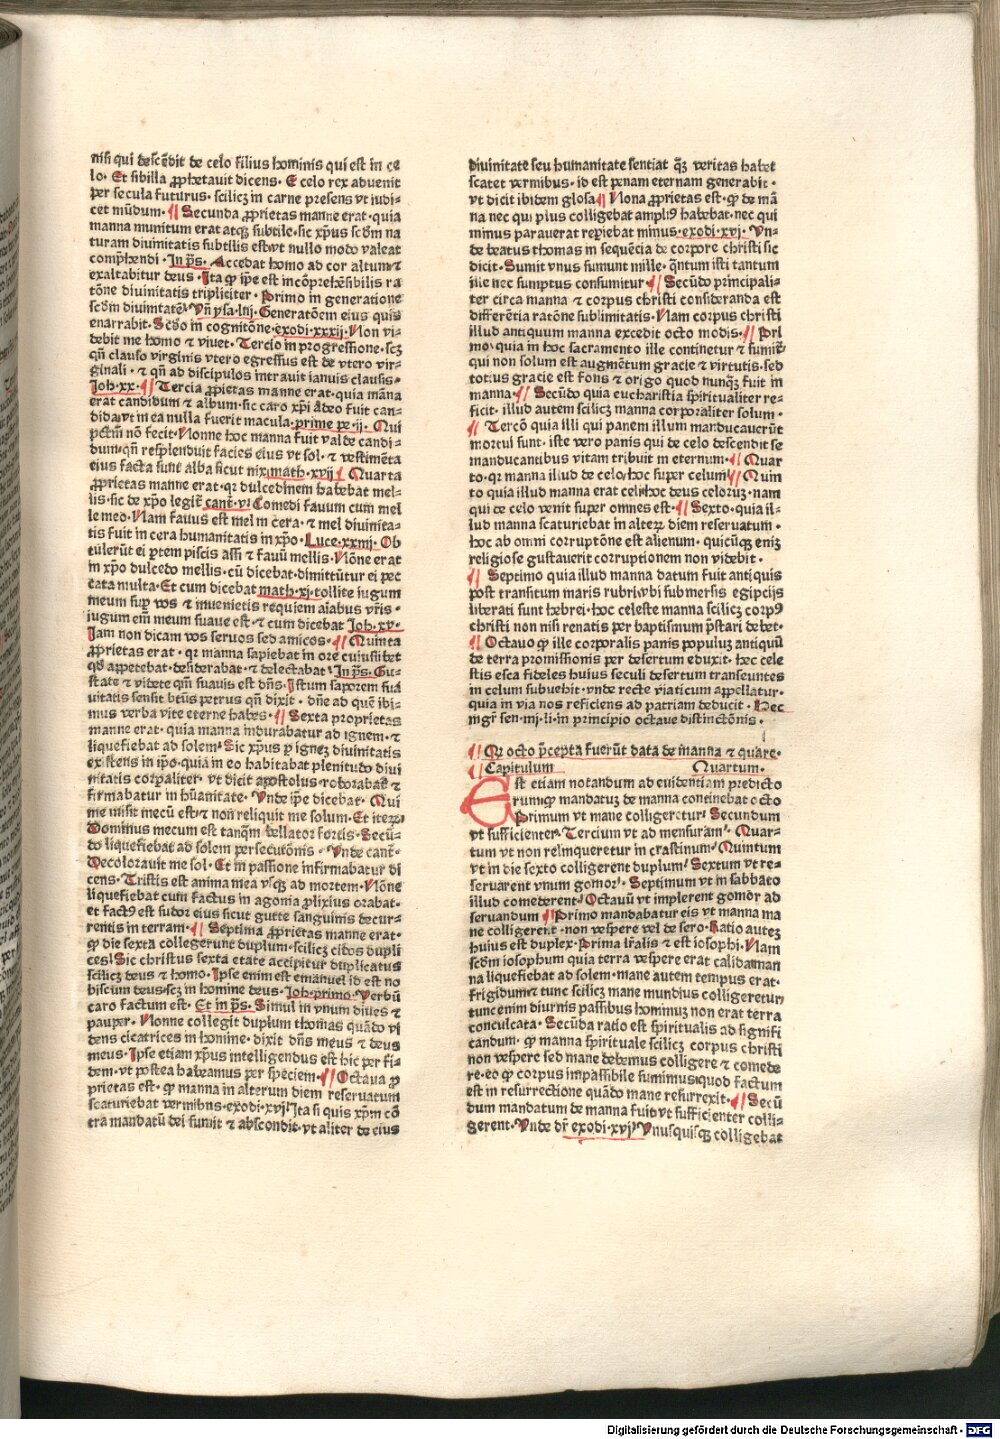 nisi qui descēdit de celo filius hominis qui est in ce
lo. Et sibilla ꝓphetauit dicens. E celo rex adueniet
per secula futurus. scilicꝫ in carne presens vt iudi-
cet mūdum. ¶ Secunda ꝓprietas manne erat. quia
manna munitum erat atqꝫ subtile. sic xp̄us scd̄m na
turam diuinitatis subtilis est vt nullo modo valeat
compr̄hendi. In ps̄. Accedat homo ad cor altum ⁊
exaltabitur deus. Ita ꝙ ip̄e est incōprehēsibilis ra
tōne diuinitatis tripliciter. Primo in generatione
scd̄m diuinitatē. Vn̄ ysa. liij. Generatōem eius quis
enarrabit. Scd̄o in cognitōne. exodi. xxxiij. Non vi-
debit me homo ⁊ viuet. Tercio in progressione. scꝫ
qn̄ clauso virginis vtero egressus est de vtero vir-
ginali. ⁊ qn̄ ad discipulos intrauit ianuis clausis.
Joh. xx. ¶ Tercia ꝓprietas manne erat. quia māna
erat candidum ⁊ album. sic caro xp̄i adeo fuit can-
dida. vt in ea nulla fuerit macula. prime pe. ij. Qui
pctm̄ nō fecit. Nonne hoc manna fuit valde candi-
dum. qn̄ resplenduit facies eius vt sol. ⁊ vestimēta
eius facta sunt alba sicut nix. math. xvij ¶ Quarta
ꝓprietas manne erat. qꝛ dulcedinem habebat mel-
lis. sic de xp̄o legit᷑ cant̄. v. Comedi fauum cum mel
le meo. Nam fauus est mel in cera. ⁊ mel diuinita-
tis fuit in cera humanitatis in xp̄o. Luce. xxiiij. Ob
tulerūt ei ꝑtem piscis assi ⁊ fauū mellis. Nōne erat
in xp̄o dulcedo mellis. cū dicebat. dimittūtur ei pec
cata multa. Et cum dicebat math. xj. tollite iugum
meum sup̄ vos ⁊ inuenietis requiem aīabus vr̄is.
iugum em̄ meum suaue est. ⁊ cum dicebat Joh. xv.
Jam non dicam vos seruos sed amicos. ¶ Quinta
ꝓprietas erat. qꝛ manna sapiebat in ore cuiuslibet
qd̄ appetebat. desiderabat. ⁊ delectabat᷑. In ps̄. Gu-
state ⁊ videte qm̄ suauis est dn̄s. Istum saporem sua
uitatis sensit bt̄us petrus qn̄ dixit. dn̄e ad quē ibi-
mus verba vite eterne habes. ¶ Sexta proprietas
manne erat. quia manna indurabatur ad ignem. ⁊
liquefiebat ad solem. Sic xp̄us ꝑ ignē diuinitatis
existens in ip̄o. quia in eo habitabat plenitudo diui
nitatis corꝑaliter. vt dicit apostolus. roborabat᷑ ⁊
firmabatur in hūanitate. Vnde ip̄e dicebat. Qui
me misit mecū est. ⁊ non reliquit me solum. Et iteꝝ
Dominus mecum est tanqm̄ bellator fortis. Secū-
do liquefiebat ad solem persecutōnis. Vnde cant̄.
Decolorauit me sol. Et in passione infirmabatur di
cens. Tristis est anima mea vsqꝫ ad mortem. Nōne
liquefiebat cum factus in agonia ꝓlixius orabat.
et factꝰ est sudor eius sicut gutte sanguinis decur-
rentis in terram. ¶ Septima ꝓprietas manne erat.
ꝙ die sexta collegerunt duplum. scilicꝫ cibos dupli
ces. Sic christus sexta etate accipitur duplicatus
scilicꝫ deus ⁊ homo. Ipse enim est emanuel id est no
biscum deus. scꝫ in homine deus. Joh. primo. Verbū
caro factum est. Et in ps̄. Simul in vnum diues ⁊
pauper. Nonne collegit duplum thomas quādo vi
dens cicatrices in homine. dixit dn̄s meus ⁊ deus
meus. Ipse etiam xp̄us intelligendus est hic per fi-
dem. vt postea habeamus per speciem. ¶ Octaua ꝓ
prietas est. ꝙ manna in alterum diem reseruatum
scaturiebat vermibus. exodi. xvj. Ita si quis xp̄m cō
tra mandatū dei sumit ⁊ abscondit. vt aliter de eius
diuinitate seu humanitate sentiat qꝫ veritas habet
scatet vermibus. id est penam eternam generabit.
vt dicit ibidem glosa ¶ Nona ꝓprietas est. ꝙ de mā
na nec qui plus colligebat ampliꝰ habebat. nec qui
minus parauerat repiebat minus. exodi. xvj. Vn-
de beatus thomas in sequēcia de corpore christi sic
dicit. Sumit vnus sumunt mille. qntum isti tantum
ille nec sumptus consumitur ¶ Secūdo principali-
ter circa manna ⁊ corpus christi consideranda est
differētia ratōne sublimitatis. Nam corpus christi
illud antiquum manna excedit octo modis. ¶ Pri
mo. quia in hoc sacramento ille continetur ⁊ sumit᷑
qui non solum est augmētum gracie ⁊ virtutis. sed
totius gracie est fons ⁊ origo quod nunqꝫ fuit in
manna. ¶ Secūdo quia eucharistia spiritualiter re-
ficit. illud autem scilicꝫ manna corporaliter solum.
¶ Tercō quia illi qui panem illum manducauerūt
mortui sunt. iste vero panis qui de celo descendit se
manducantibus vitam tribuit in eternum. ¶ Quar
to. qꝛ manna illud de celo, hoc super celum ¶ Quin
to quia illud manna erat celi, hoc deus celoꝝ. nam
qui de celo venit super omnes est. ¶ Sexto. quia il-
lud manna scaturiebat in alteꝝ diem reseruatum.
hoc ab omni corruptōne est alienum. quicūqꝫ enim
religiose gustauerit corruptionem non videbit.
¶ Septimo quia illud manna datum fuit antiquis
post transitum maris rubri, vbi submersis egipcijs
liberati sunt hebrei. hoc celeste manna scilicꝫ corpꝰ
christi non nisi renatis per baptismum p̄stari debet.
¶ Octauo ꝙ ille corporalis panis populum antiquū
de terra promissionis per desertum eduxit. hec cele
stis esca fideles huius seculi desertum transeuntes
in celum subuehit. vnde recte viaticum appellatur.
quia in via nos reficiens ad patriam deducit. Hec
mgr̄ sen. iiij. li. in principio octaue distinctōnis.
¶ Qꝛ octo p̄cepta fuerūt data de manna ⁊ quare.
¶ Capitulum Quartum.
Est etiam notandum ad euidentiam predicto
rum. ꝙ mandatum de manna continebat octo
Primum vt mane colligeretur. Secundum
vt sufficienter. Tercium vt ad mensuram. Quar-
tum vt non relinqueretur in crastinum. Quintum
vt in die sexto colligerent duplum. Sextum vt re-
seruarent vnum gomor. Septimum vt in sabbato
illud comederent. Octauū vt implerent gomor ad
seruandum ¶ Primo mandabatur eis vt manna ma
ne colligerent. non vespere vel de sero. Ratio autem
huius est duplex. Prima lr̄alis ⁊ est iosophi. Nam
scd̄m iosophum quia terra vespere erat calida. man
na liquefiebat ad solem. mane autem tempus erat
frigidum ⁊ tunc scilicꝫ mane mundius colligeretur,
tunc enim diurnis passibus hominum non erat terra
conculcata. Secūda ratio est spiritualis ad signifi
candum. ꝙ manna spirituale scilicꝫ corpus christi
non vespere sed mane debemus colligere ⁊ comede
re. eo ꝙ corpus impassibile sumimus, quod factum
est in resurrectione quādo mane resurrexit. ¶ Secū
dum mandatum de manna fuit, vt sufficienter colli-
gerent. Vnde dr̄ exodi. xvj. Vnusquisqꝫ colligebat
Digitalisierung gefördert durch die Deutsche Forschungsgemeinschaft - DFG